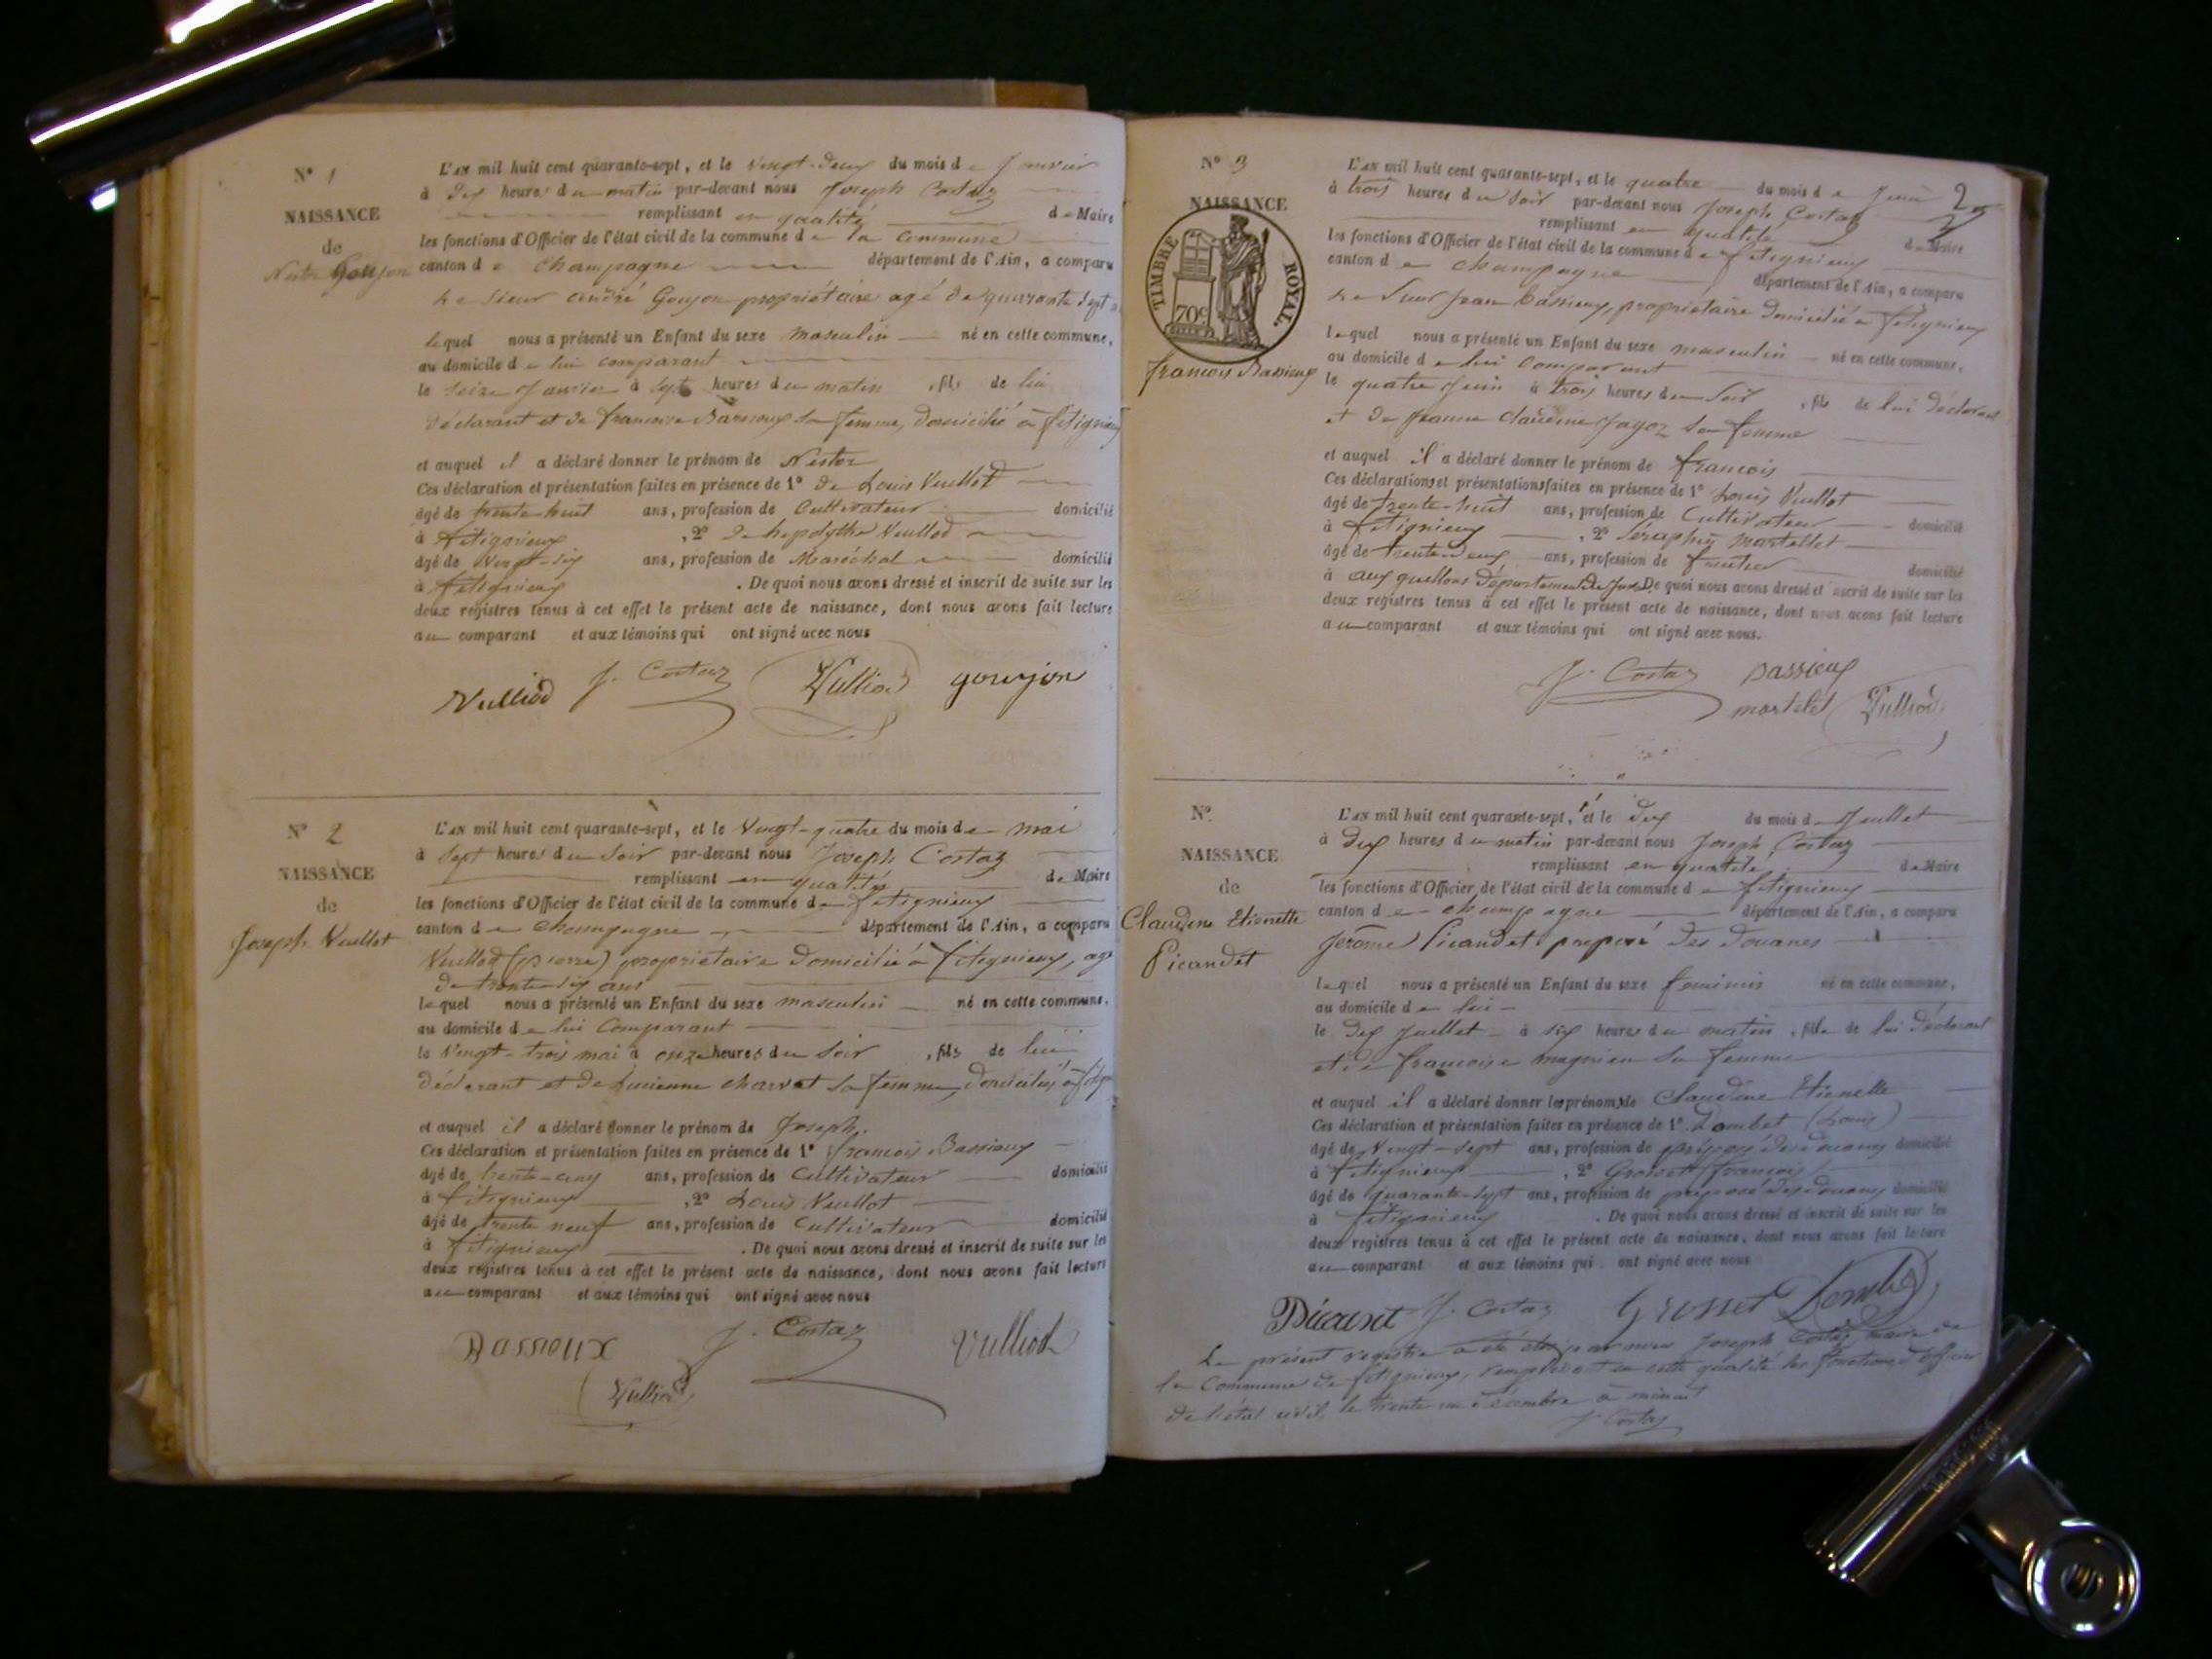 N° 1
NAISSANCE
de
Nestor Goujon
L'an mil huit cent quarante-sept, et le vingt-deux du mois de janvier
à dix heures du matin par-devant nous Joseph Costaz
remplissant en qualité de Maire
les fonctions d'Officier de l'état civil de la commune de la commune
canton de Champagne département de l'Ain, a comparu
le sieur andré Goujon propriétaire agé de quarante sept
lequel nous a présenté un Enfant du sexe masculin né en cette commune,
au domicile de lui comparant
le seize janvier à sept heures du matin, fils de lui
déclarant et de francoise Bassieux sa femme, domicilié à fitignieux
et auquel il a déclaré donner le prénom de Nestor
Ces déclaration et présentation faites en présence de 1° de Louis Vuillot
âgé de trente-huit ans, profession de Cultivateur domicilié
à fitignieux, 2° de hypolythe Vuillod
âgé de vingt-six ans, profession de Maréchal domicilié
à fitignieux. De quoi nous avons dressé et inscrit de suite sur les
deux registres tenus à cet effet le présent acte de naissance, dont nous avons fait lecture
au comparant et aux témoins qui ont signé avec nous
Vulliod J. Costaz Vulliod goujon
N° 2
NAISSANCE
de
Joseph Vuillot
L'an mil huit cent quarante-sept, et le vingt-quatre du mois de mai
à sept heures du soir par-devant nous Joseph Costaz
remplissant en qualité de Maire
les fonctions d'Officier de l'état civil de la commune de fitignieux
canton de Champagne département de l'Ain, a comparu
Vuillod (pierre) propriétaire domicilié à fitignieux, agé
de trente-six ans
lequel nous a présenté un Enfant du sexe masculin né en cette commune,
au domicile de lui Comparant
le vingt-trois mai à onze heures du soir, fils de lui
déclarant et de Lucienne charvet sa femme, domiciliés à
et auquel il a déclaré donner le prénom de Joseph.
Ces déclaration et présentation faites en présence de 1° francois Bassieux
âgé de trente-cinq ans, profession de cultivateur domicilié
à fitignieux, 2° Louis Vuillot
âgé de trente neuf ans, profession de cultivateur domicilié
à fitignieux. De quoi nous avons dressé et inscrit de suite sur les
deux registres tenus à cet effet le présent acte de naissance, dont nous avons fait lecture
au comparant et aux témoins qui ont signé avec nous
Bassieux J. Costaz Vulliod
Vulliod
2
N° 3
NAISSANCE
TIMBRE ROYAL.
70c
francois Bassieux
L'an mil huit cent quarante-sept, et le quatre du mois de juin
à trois heures du soir par-devant nous Joseph Costaz
remplissant en qualité de Maire
les fonctions d'Officier de l'état civil de la commune de fitignieux
canton de champagne département de l'Ain, a comparu
le sieur jean bassieux, propriétaire domicilié à fitignieux
lequel nous a présenté un Enfant du sexe masculin né en cette commune,
au domicile de lui comparant
le quatre juin à trois heures du soir, fils de lui déclarant
et de jeanne claudine jayoz sa femme
et auquel il a déclaré donner le prénom de francois
Ces déclarations et présentations faites en présence de 1° Louis Vuillot
âgé de trente-huit ans, profession de Cultivateur domicilié
à fitignieux, 2° Séraphin martellet
âgé de trente-deux ans, profession de fruitier domicilié
à aux quellons département du jura De quoi nous avons dressé et inscrit de suite sur les
deux registres tenus à cet effet le présent acte de naissance, dont nous avons fait lecture
au comparant et aux témoins qui ont signé avec nous.
J. Costaz Bassieux
martelet Vulliod
N°.
NAISSANCE
de
Claudine Etienette
Picandet
L'an mil huit cent quarante-sept, et le dix du mois de juillet
à dix heures du matin par-devant nous Joseph Costaz
remplissant en qualité de Maire
les fonctions d'Officier de l'état civil de la commune de fitignieux
canton de champagne département de l'Ain, a comparu
Jerôme Picandet préposé des Douanes
lequel nous a présenté un Enfant du sexe feminin né en cette commune,
au domicile de lui
le dix juillet à six heures du matin, fille de lui déclarant
et de francoise magnien sa femme
et auquel il a déclaré donner les prénoms de Claudine Etienette
Ces déclaration et présentation faites en présence de 1° Lombet (Louis)
âgé de vingt-sept ans, profession de préposé des douanes domicilié
à fitignieux, 2° Grosset (francois)
âgé de quarante-sept ans, profession de préposé des douanes domicilié
à fitignieux. De quoi nous avons dressé et inscrit de suite sur les
deux registres tenus à cet effet le présent acte de naissance, dont nous avons fait lecture
au comparant et aux témoins qui ont signé avec nous
Picandet J. Costaz Grosset Lombet
Le présent registre a été clos par nous Joseph Costaz, maire de
la Commune de fitignieux, remplissant en cette qualité les fonctions d'officier
de l'état civil, le trente un décembre à minuit
J. Costaz